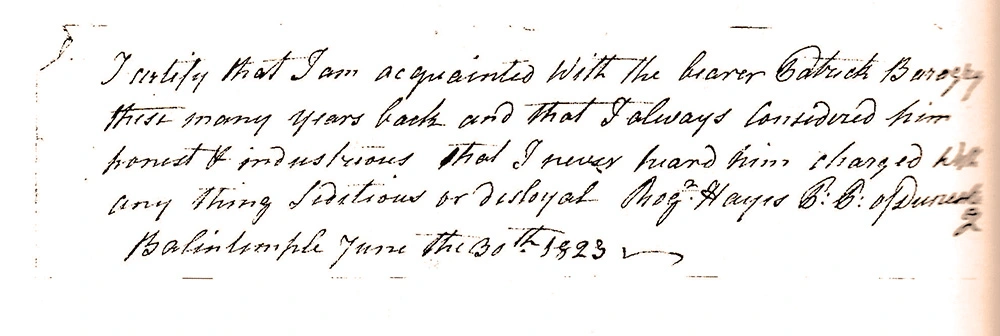 I certify that I am acquainted With the bearer Patrick
these many years back and that I always Considered him
honest & industrious that I never heard him charged With
any thing Seditious or disloyal Rog.r Hayes P: P: of
Balintemple June the 30th 1823